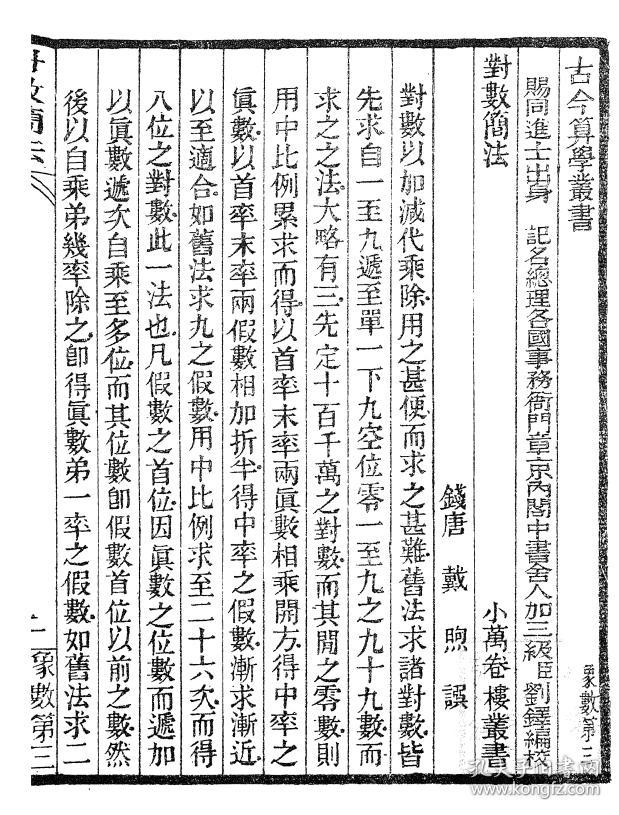 古今算學叢書
象數第三
賜同進士出身　記名總理各國事務衙門章京內閣中書舍人加三級臣劉鐸編校
對數簡法　小萬卷樓叢書
錢唐　戴　煦　譔
對數以加減代乘除用之甚便而求之甚難舊法求諸對數皆
先求自一至九遞至單一下九空位零一至九之九十九數而
求之之法大略有三先定十百千萬之對數而其閒之零數則
用中比例累求而得以首率末率兩眞數相乘開方得中率之
眞數以首率末率兩假數相加折半得中率之假數漸求漸近
以至適合如舊法求九之假數用中比例求至二十六次而得
八位之對數此一法也凡假數之首位因眞數之位數而遞加
以眞數遞次自乘至多位而其位數卽假數首位以前之數然
後以自乘弟幾率除之卽得眞數弟一率之假數如舊法求二
象數第三
孔夫子旧书网
kongfz.com